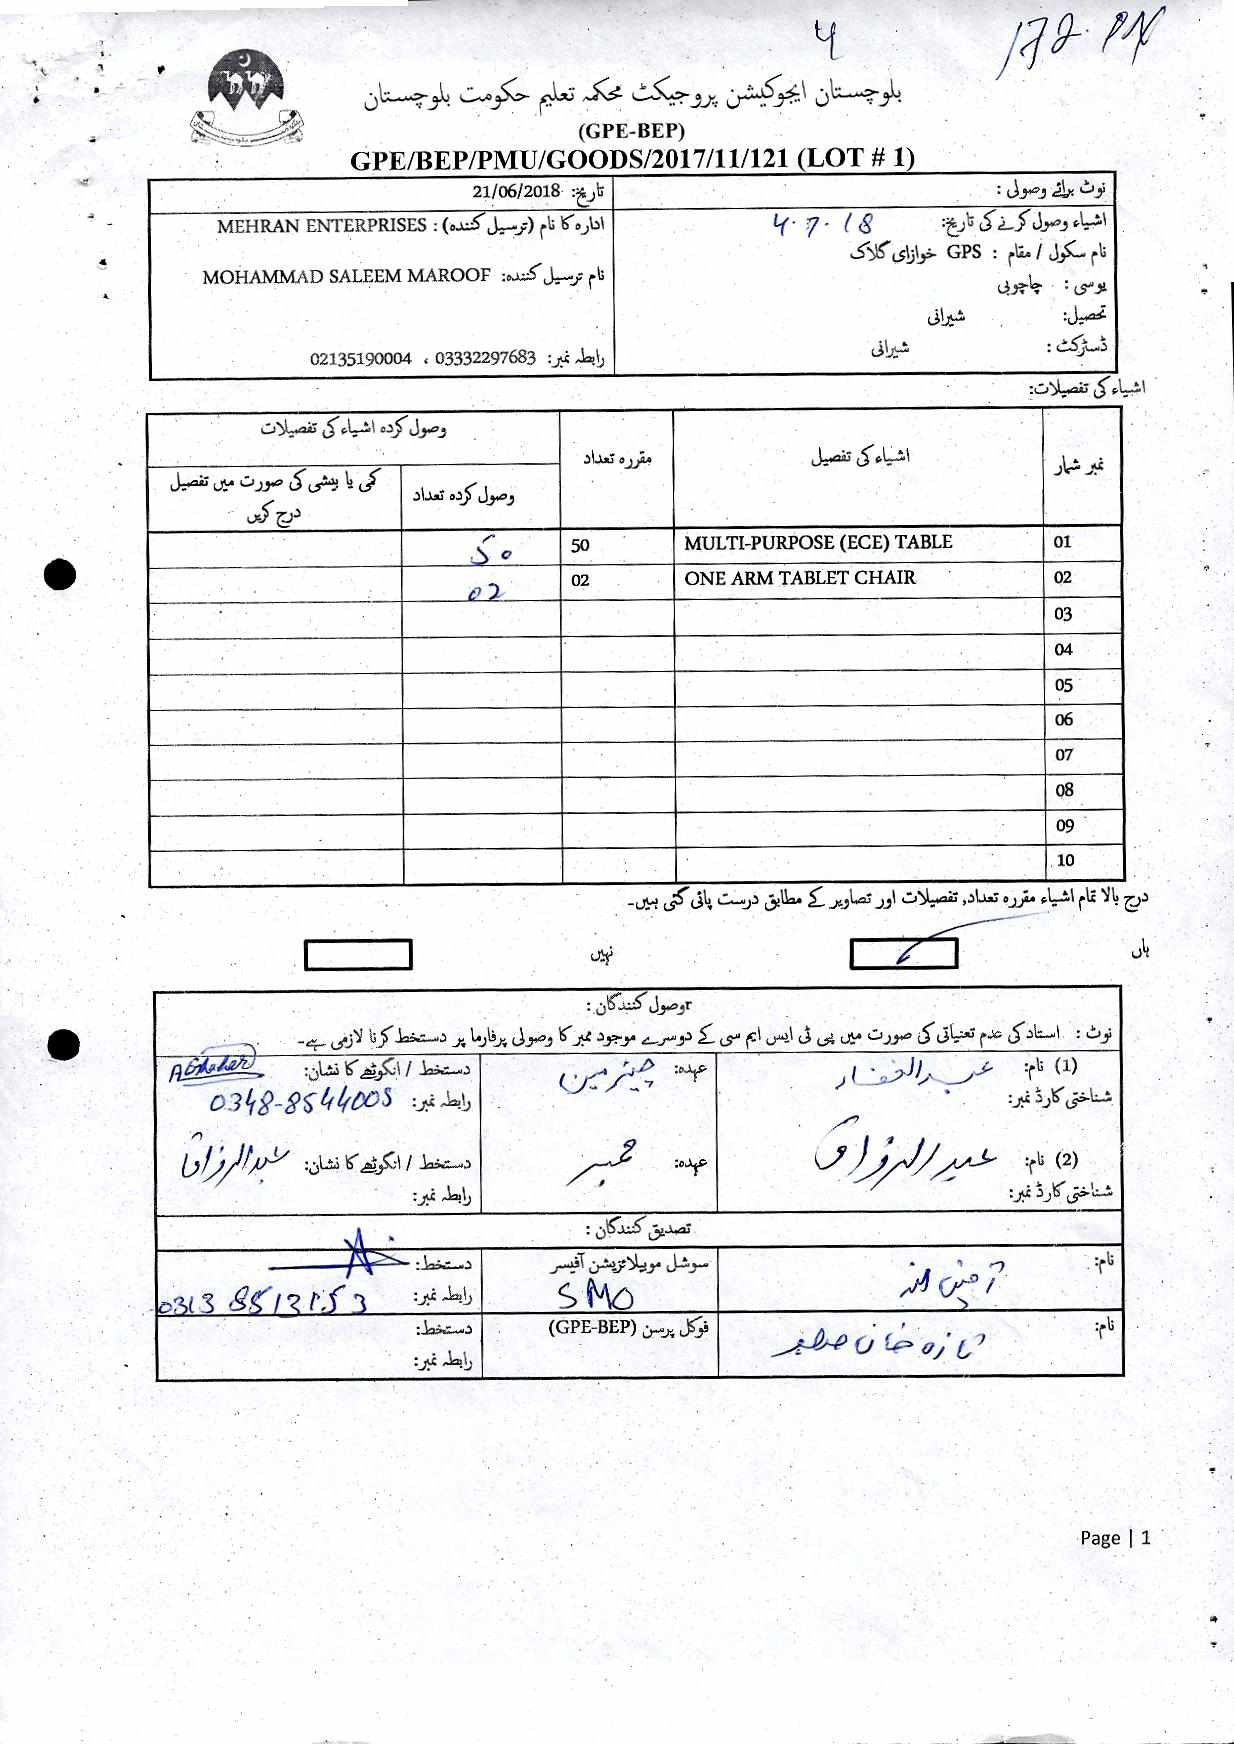 4
172. PN
بلوچستان ایجوکیشن پروجیکٹ محکمہ تعلیم حکومت بلوچستان
(GPE-BEP)
GPE/BEP/PMU/GOODS/2017/11/121 (LOT # 1)
نوٹ برائے وصولی :
اشیاء وصول کرنے کی تاریخ: 4.7.18
نام سکول / مقام : GPS خوازای گلاک
یوسی : چاچوبی
تحصیل: شیرانی
ڈسٹرکٹ : شیرانی
تاریخ: 21/06/2018
ادارہ کا نام (ترسیل کنندہ) : MEHRAN ENTERPRISES
نام ترسیل کنندہ: MOHAMMAD SALEEM MAROOF
رابطہ نمبر: 03332297683 ، 02135190004
اشیاء کی تفصیلات:
نمبر شمار اشیاء کی تفصیل مقررہ تعداد وصول کردہ اشیاء کی تفصیلات
وصول کردہ تعداد کمی یا بیشی کی صورت میں تفصیل درج کریں
01 MULTI-PURPOSE (ECE) TABLE 50 50
02 ONE ARM TABLET CHAIR 02 02
03
04
05
06
07
08
09
10
درج بالا تمام اشیاء مقررہ تعداد, تفصیلات اور تصاویر کے مطابق درست پائی گئی ہیں۔
ہاں نہیں
وصول کنندگان :
نوٹ : استاد کی عدم تعیناتی کی صورت میں پی ٹی ایس ایم سی کے دوسرے موجود ممبر کا وصولی پرفارما پر دستخط کرنا لازمی ہے۔
(1) نام: عبدالغفار عہدہ: چیئرمین دستخط / انگوٹھے کا نشان:
شناختی کارڈ نمبر: رابطہ نمبر: 0348-8544005
(2) نام: عبدالرزاق عہدہ: ممبر دستخط / انگوٹھے کا نشان: عبدالرزاق
شناختی کارڈ نمبر: رابطہ نمبر:
تصدیق کنندگان :
نام: سوشل موبیلائزیشن آفیسر دستخط:
SMO رابطہ نمبر: 0313 8513153
نام: تازہ خان فوکل پرسن (GPE-BEP) دستخط:
رابطہ نمبر:
Page | 1